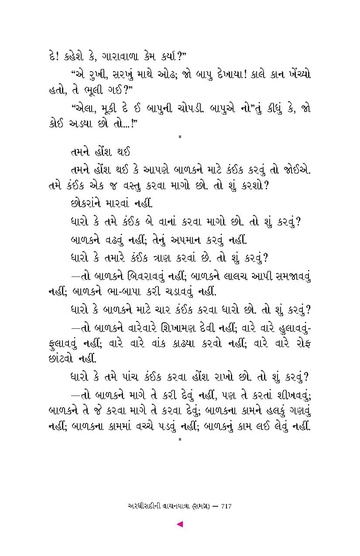 દે! કહેશે કે, ગારાવાળા કેમ કર્યા?”
“એ રુખી, સરખું માથે ઓઢ; જો બાપુ દેખાયા! કાલે કાન ખેંચ્યો
હતો, તે ભૂલી ગઈ?”
“એલા, મૂકી દે ઈ બાપુની ચોપડી. બાપુએ નો”તું કીધું કે, જો
કોઈ અડ્યા છો તો...!”
*
તમને હોંશ થઈ
તમને હોંશ થઈ કે આપણે બાળકને માટે કંઈક કરવું તો જોઈએ.
તમે કંઈક એક જ વસ્તુ કરવા માગો છો. તો શું કરશો?
છોકરાંને મારવાં નહીં.
ધારો કે તમે કંઈક બે વાનાં કરવા માગો છો. તો શું કરવું?
બાળકને વઢવું નહીં; તેનું અપમાન કરવું નહીં.
ધારો કે તમારે કંઈક ત્રાણ કરવાં છે. તો શું કરવું?
—તો બાળકને બિવરાવવું નહીં; બાળકને લાલચ આપી સમજાવવું
નહીં; બાળકને ભા-બાપા કરી ચડાવવું નહીં.
ધારો કે બાળકને માટે ચાર કંઈક કરવા ધારો છો. તો શું કરવું?
—તો બાળકને વારેવારે શિખામણ દેવી નહીં; વારે વારે હુલાવવું-
ફુલાવવું નહીં; વારે વારે વાંક કાઢ્યા કરવો નહીં; વારે વારે રોફ
છાંટવો નહીં.
ધારો કે તમે પાંચ કંઈક કરવા હોંશ રાખો છો. તો શું કરવું?
—તો બાળકને માગે તે કરી દેવું નહીં, પણ તે કરતાં શીખવવું;
બાળકને તે જે કરવા માગે તે કરવા દેવું; બાળકના કામને હલકું ગણવું
નહીં; બાળકના કામમાં વચ્ચે પડવું નહીં; બાળકનું કામ લઈ લેવું નહીં.
*
અરધીસદીની વાચનયાત્રા (સમગ્ર) — 717